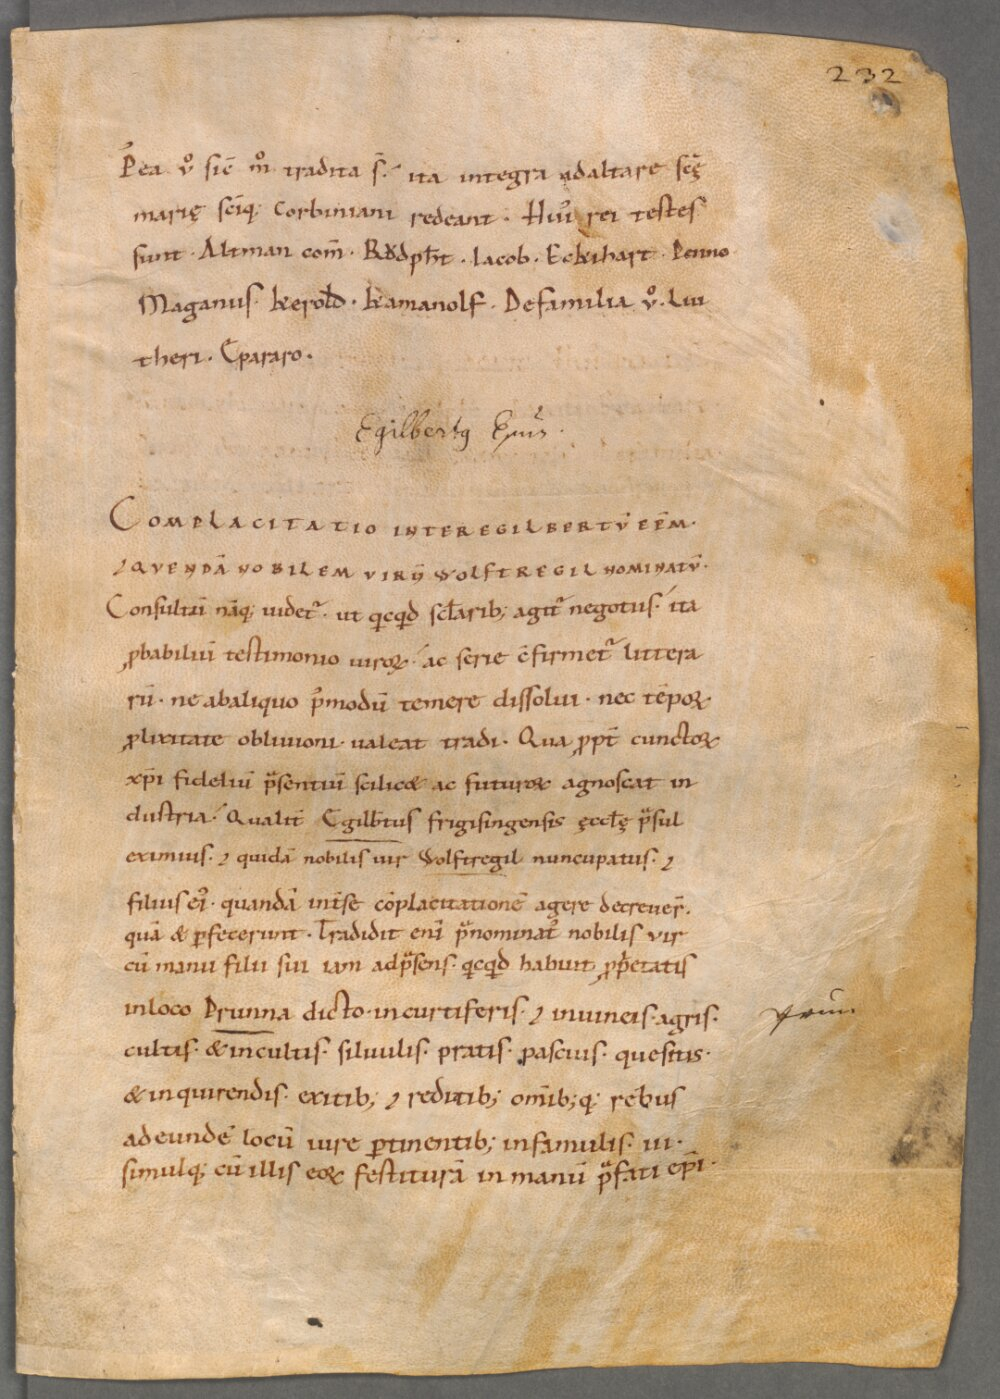 232
P̄ea v̊ sic̄ m̊ tradita s̄. ita integra adaltare sc̄ę
marię sc̄iq; corbiniani redeant. Hui᷒ rei testes
sunt. Altman com̄. Rŏdph̄t. Iacob. Eckihart. Penno.
Maganus. kerold. kamanolf. Defamilia v̊. Liu
theri. Cpararo.
Egilbertꝰ Ep̄us.
COMPLACITATIO INTER EGILBERTV̄ EP̄M.
⁊ QVENDĀ NOBILEM VIRV̄ WOLFTREGIL NOMINATV̄.
Consultū nāq; videt᷑. ut qicqid scl̄arib; agit᷑ negotiis. ita
ꝓbabiliū testimonio uiroꝝ. ac serie c̄firmet᷑ littera
rū. ne abaliquo p̄modū temere dissolui. nec tēpoꝝ
ꝓlixitate obliuioni ualeat tradi. Qua ꝓpt̄ cunctoꝝ
xp̄i fideliū p̄sentiū scilic& ac futuroꝝ agnoscat in
dustria. Qualit̄ Egilb̄tus frigisingensis ęccl̄ę p̄sul
eximius. ⁊ quidā nobilis uir Wolftregil nuncupatus. ⁊
filius ei᷒. quandā int̄se cōplacitationē agere decreuer̄.
quā & ꝑfecerunt. Tradidit eni̅ p̄nominat᷒ nobilis vir
cū manu filii sui iam adp̄sens. qicqid habuit ꝓp̄etatis
inloco Prunna dicto. incurtiferis. ⁊ inuineis. agris.
cultis. & incultis. siluulis. pratis. pascuis. quesitis.
& inquirendis. exitib; ⁊ reditib; omīb; q; rebus
ad eundē locū iure ꝑtinentib; infamulis. iii.
simulq; cū illis eoꝝ festiturā in manū p̄fati ep̄i.